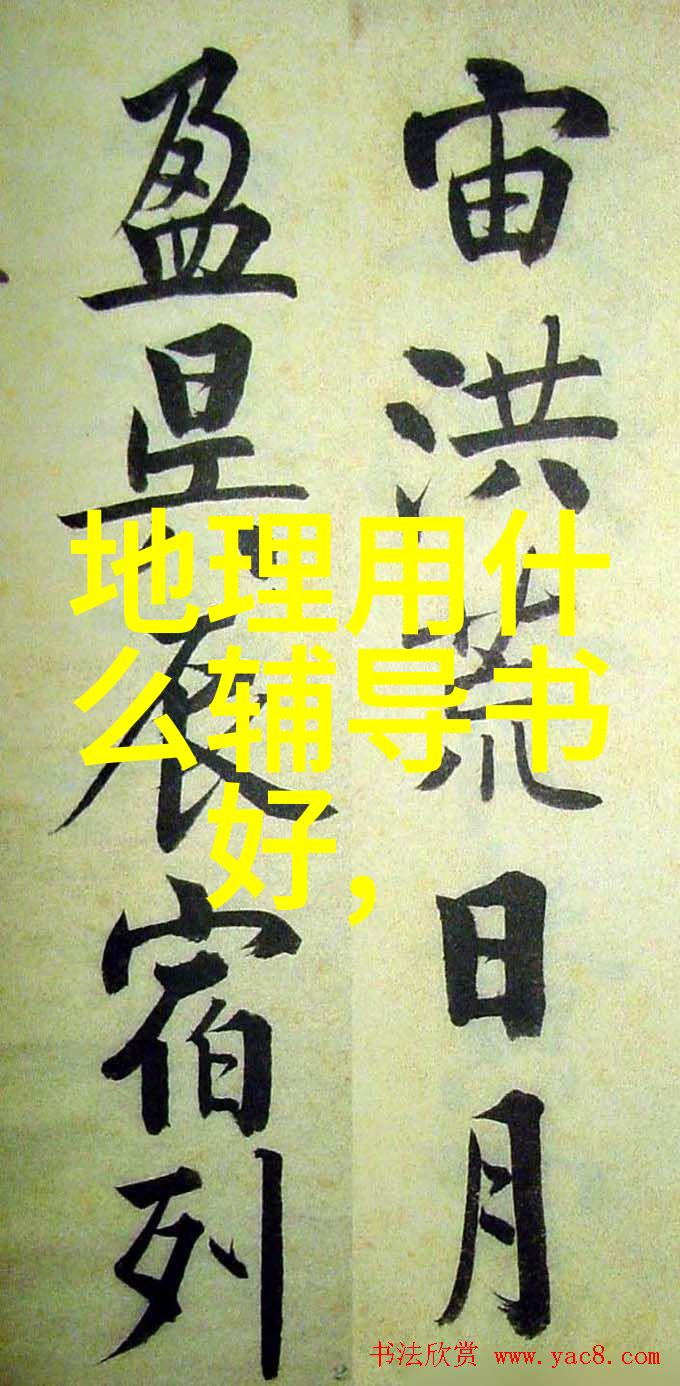 宙洪荒日月
盈昃辰宿列
地理用什
么辅导书
好，
书法欣赏 www.yac8.com